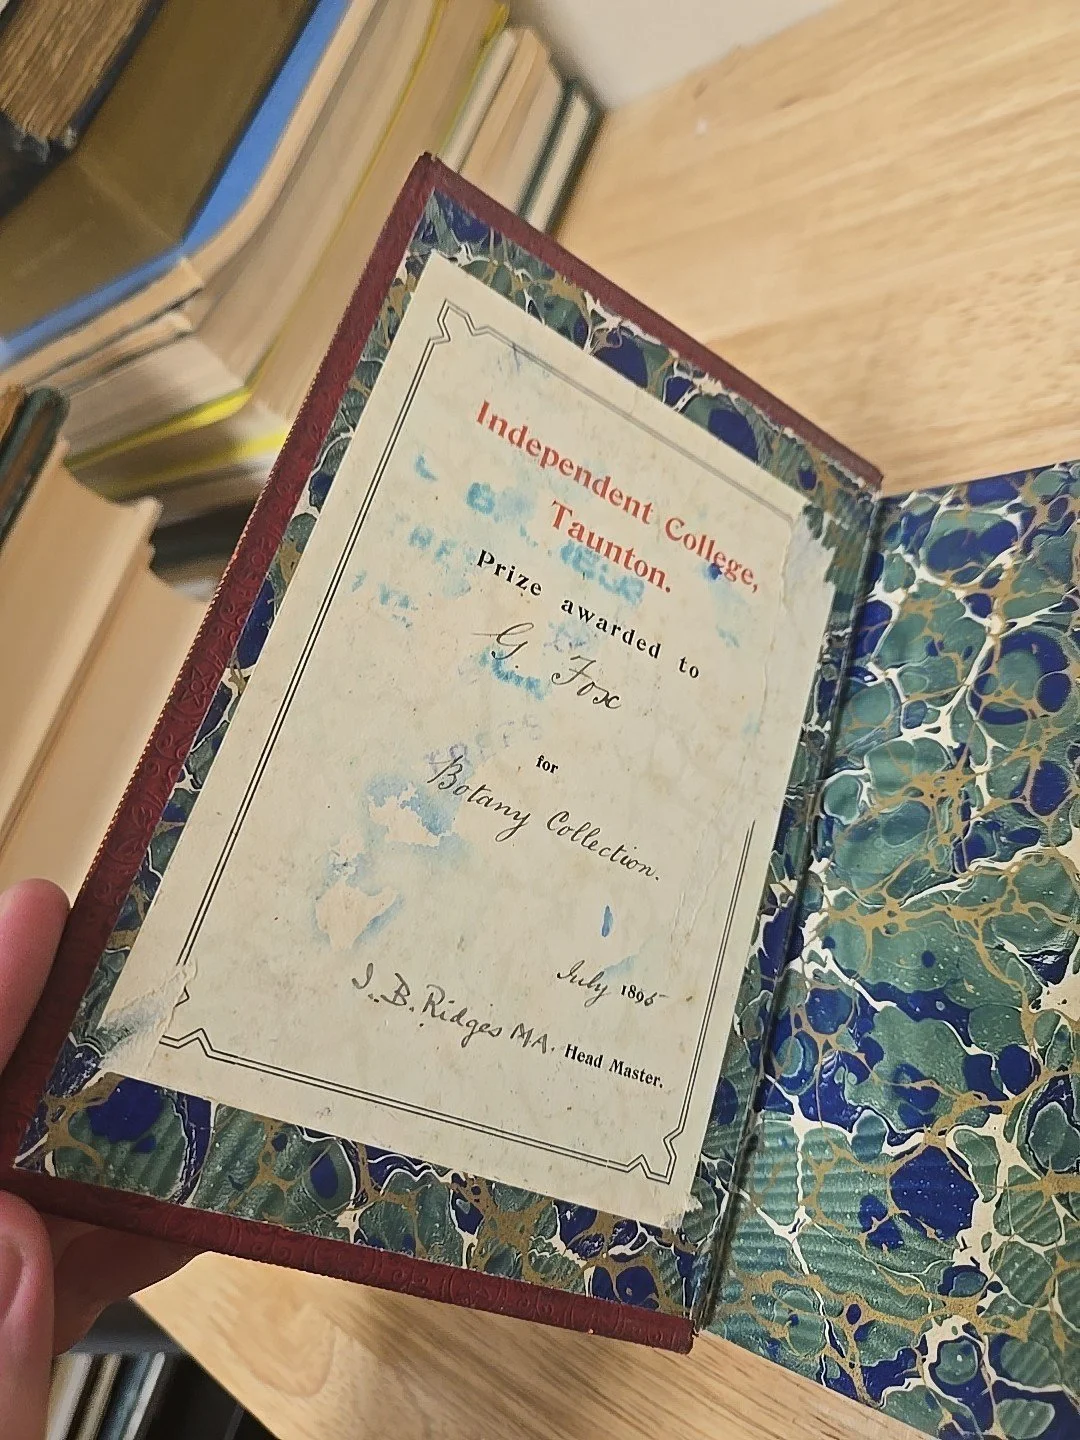 Independent College,
Taunton.
Prize awarded to
G. Fox
for
Botany Collection.
July 1895
J. B. Ridges MA. Head Master.